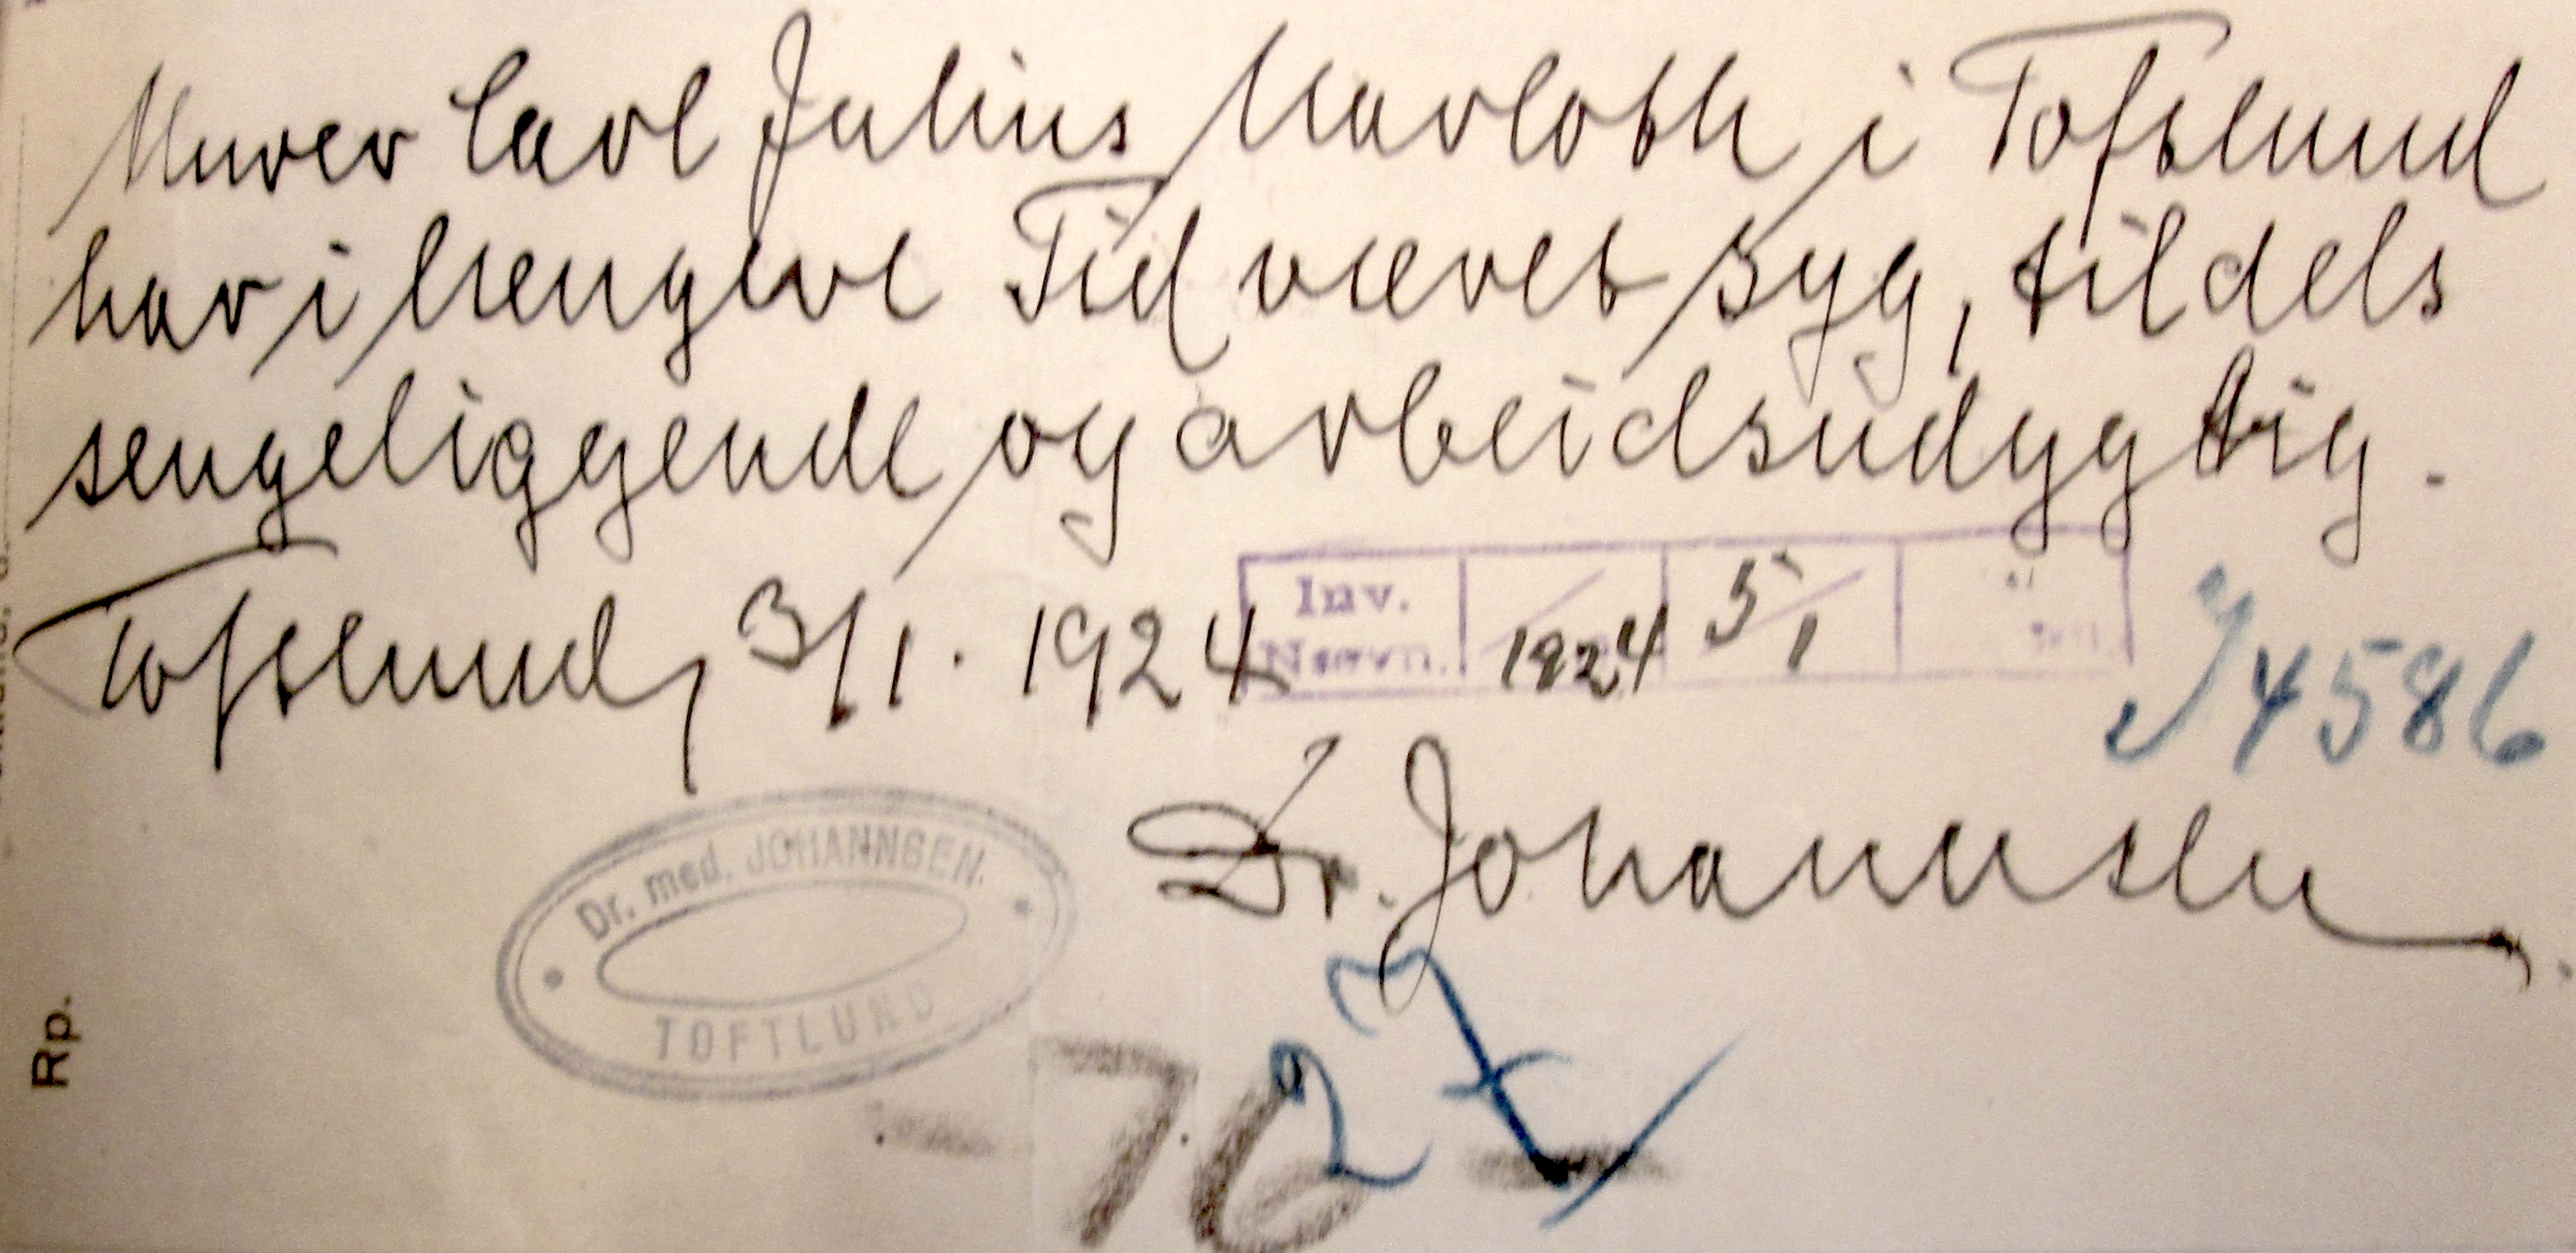 Murer Carl Julius Marloth i Toftlund
har i længere Tid været syg, tildels
sengeliggende og arbeidsudygtig.
Toftlund, 3/1. 1924
Inv.
Nævn. 1924 5/1
J 4586
Dr. Johannsen.
Dr. med. JOHANNSEN.
TOFTLUND
Rp.
- 76 -
27